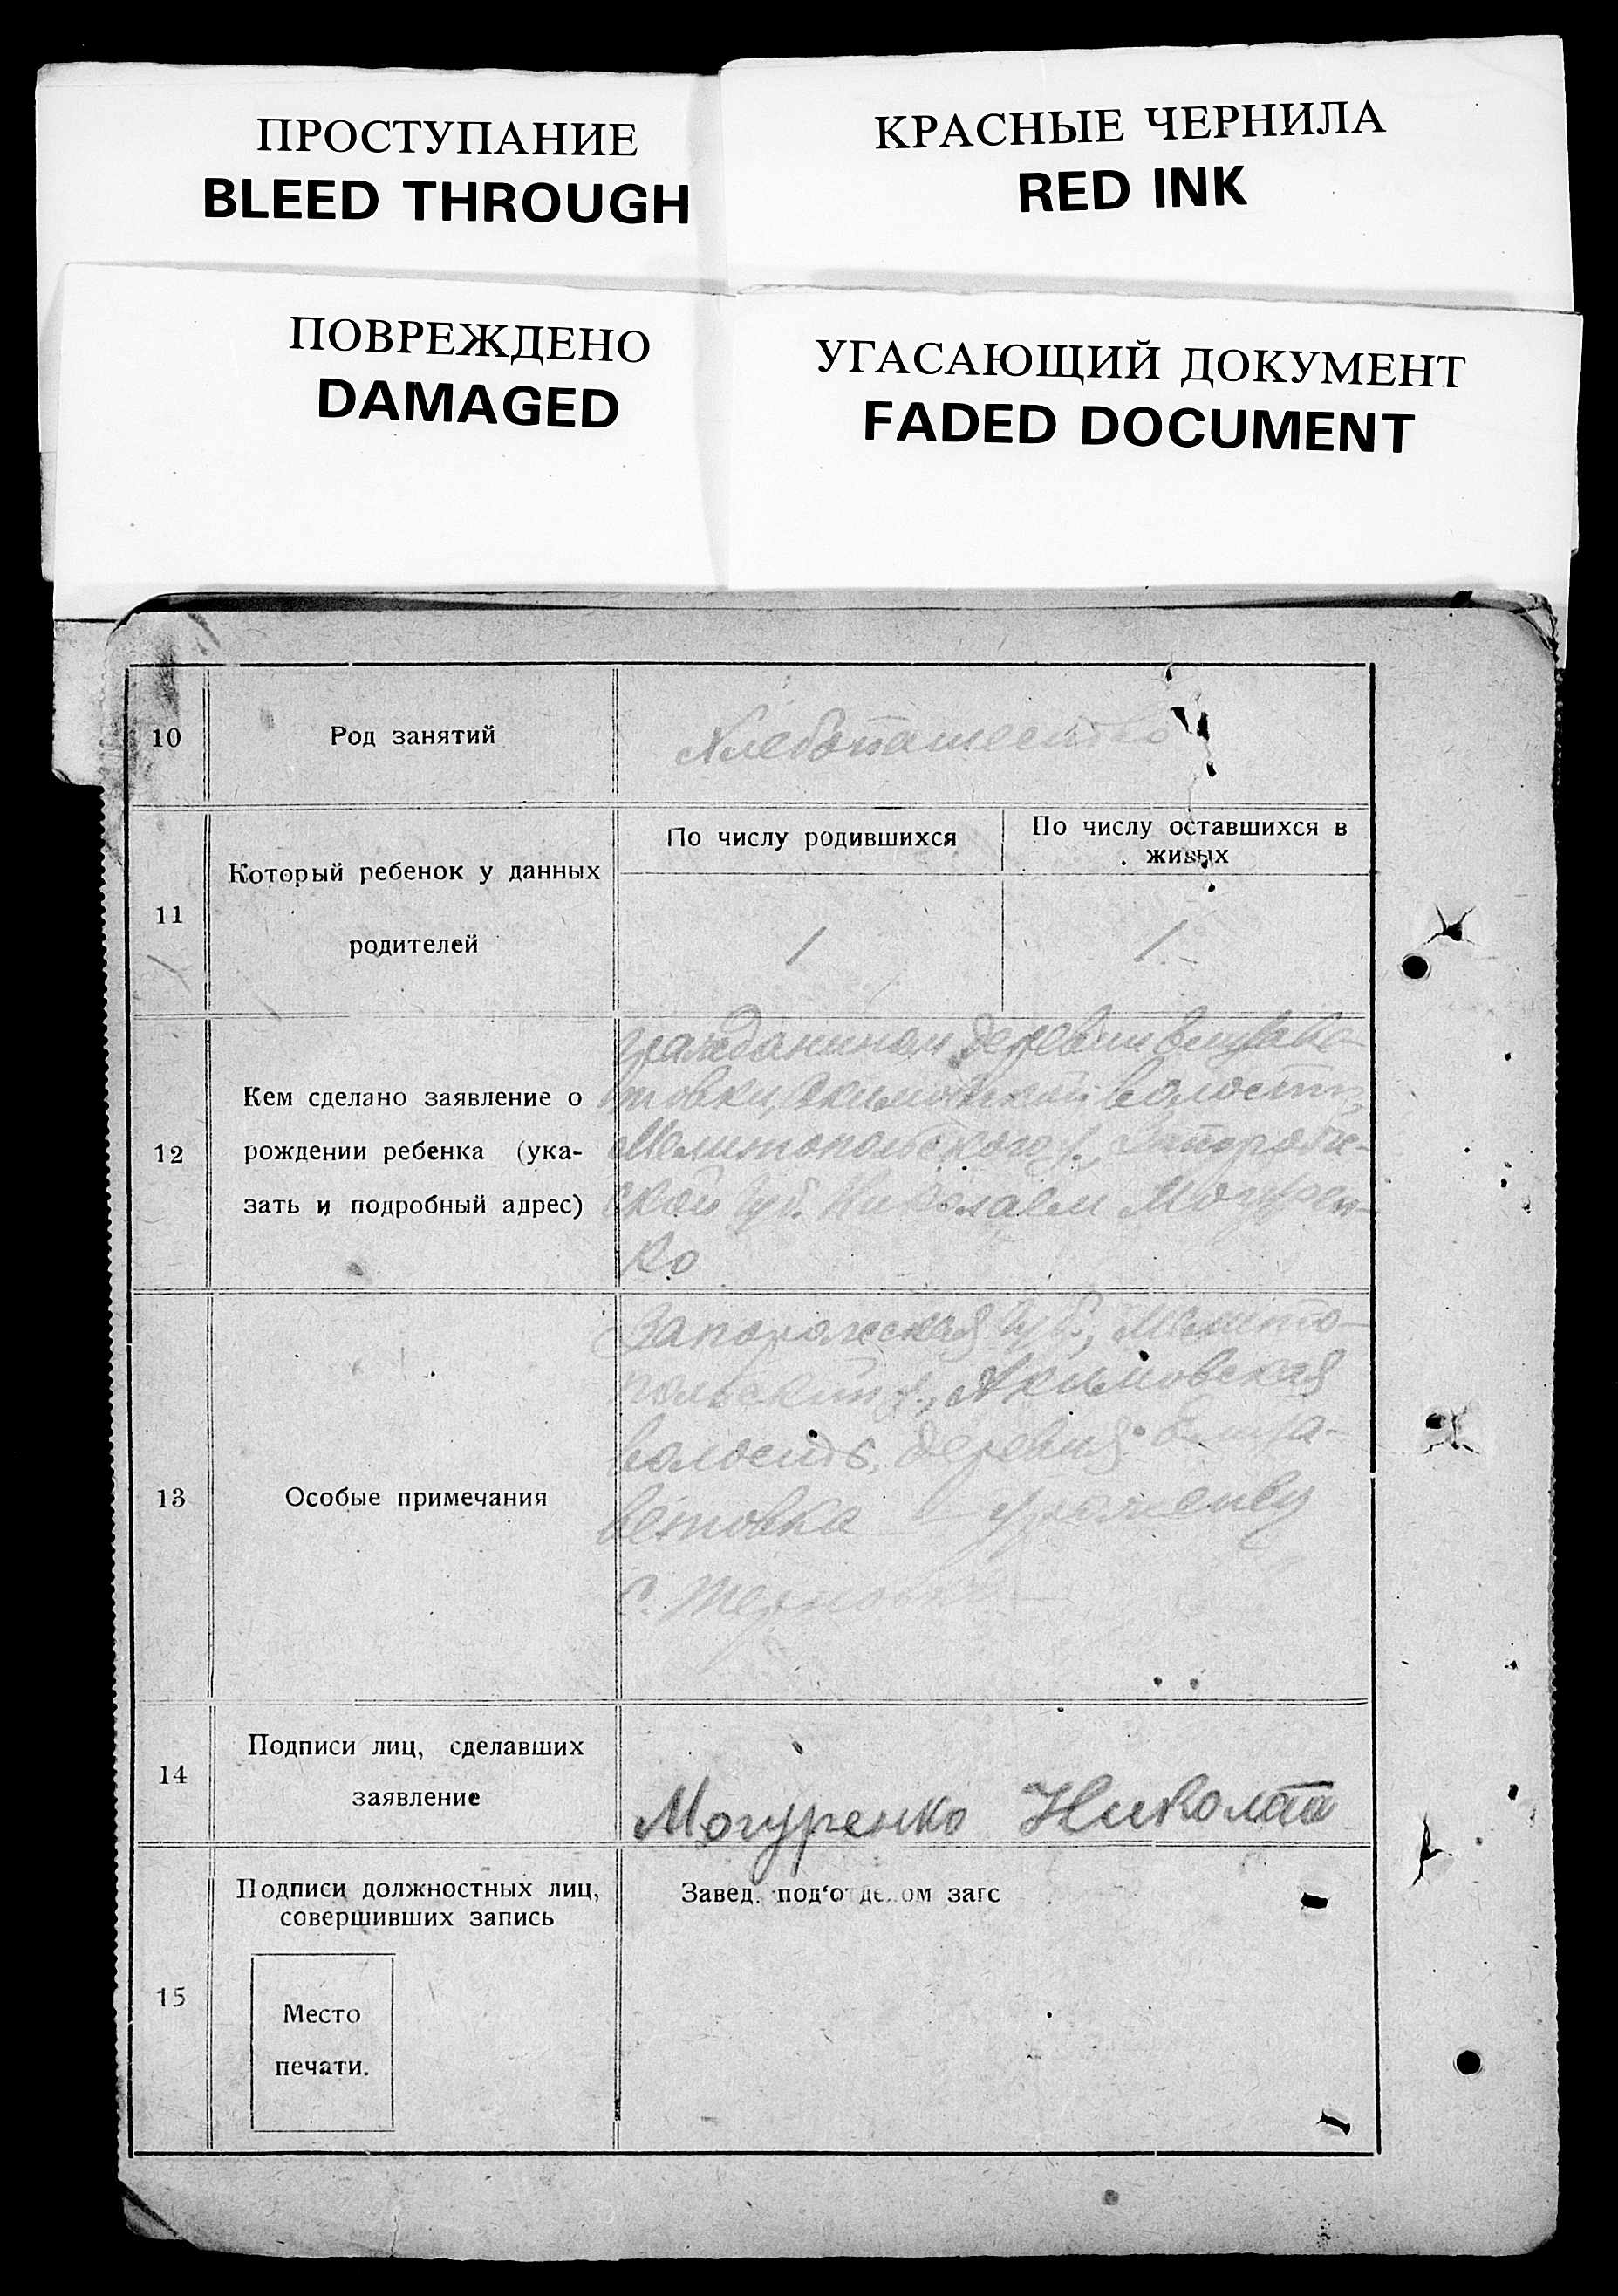 ПРОСТУПАНИЕ
BLEED THROUGH
КРАСНЫЕ ЧЕРНИЛА
RED INK
ПОВРЕЖДЕНО
DAMAGED
УГАСАЮЩИЙ ДОКУМЕНТ
FADED DOCUMENT
10
Род занятий
Хлебопашество
11
Который ребенок у данных
родителей
По числу родившихся
По числу оставшихся в
живых
1
1
12
Кем сделано заявление о
рождении ребенка (ука-
зать и подробный адрес)
гражданином деревни
товки, волости,
Мелитопольского у., Запорож-
ской губ. Николаем Могурен-
ко
13
Особые примечания
Запорожская губ., Мелито-
польский у., Акимовская
волость, деревня Елиза-
ветовка
с.
14
Подписи лиц, сделавших
заявление
Могуренко Николай
15
Подписи должностных лиц,
совершивших запись
Место
печати.
Завед. под'отделом загс